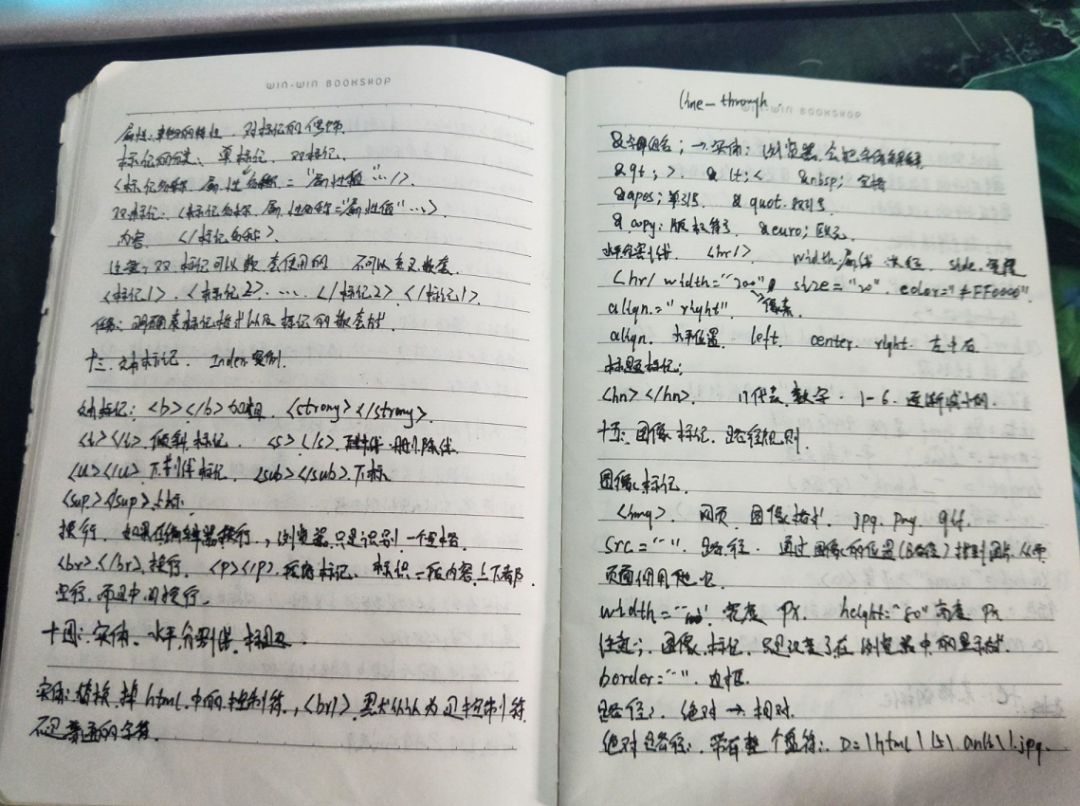 WIN-WIN BOOKSHOP
属性:事物的特性,对标记的修饰
标记的分类:单标记,双标记.
<标记名称 属性名称="属性值"…/>
双标记:<标记名称 属性名称="属性值"…>
内容 </标记名称>
注意:双标记可以嵌套使用的 不可以交叉嵌套.
<标记1>.<标记2>….</标记2>.</标记1>.
任务:明确表标记格式以及标记的嵌套
十三.文本标记. Index案例.
文本标记:<b></b>加粗.<strong></strong>.
<i></i>.倾斜标记. <s></s>. 删除线
<u></u>下划线标记. <sub></sub>下标
<sup></sup>上标.
换行. 如果在编辑器换行.,浏览器只是识别一个空格.
<br></br>.换行. <p></p>.段落标记. 标识一段内容.上下都
空行.而且中间换行.
十四:实体.水平分割线.标题.
实体:替换掉html中的控制符.,<br/>.默认认为是控制符
不是普通的字符.
line-through.
WIN-WIN BOOKSHOP
&字母组合;→实体:浏览器会把字体解释
&gt; > &lt;< &nbsp; 空格
&apos;单引号 &quot.双引号
&copy;版权符号 &euro;欧元
水平分割线 <hr/> width属性 长短.
<hr/ width="200" size="20". color="#FF0000".
align="right" 像素
align. 水平位置. left. center. right. 左中右
标题标记:
<hn></hn>. n代表数字.1-6.逐渐减小的.
十五:图像标记.路径规则.
图像标记.
<img>. 网页.图像格式. jpg. png. gif.
src="". 路径. 通过图像的位置(路径)找到图片
页面引用
width="" 宽度 px. height="50"高度 px
注意:图像标记.只设置了在浏览器中的显示
border="". 边框.
路径:. 绝对 → 相对.
绝对路径: 带有整个盘符:. D:\html\